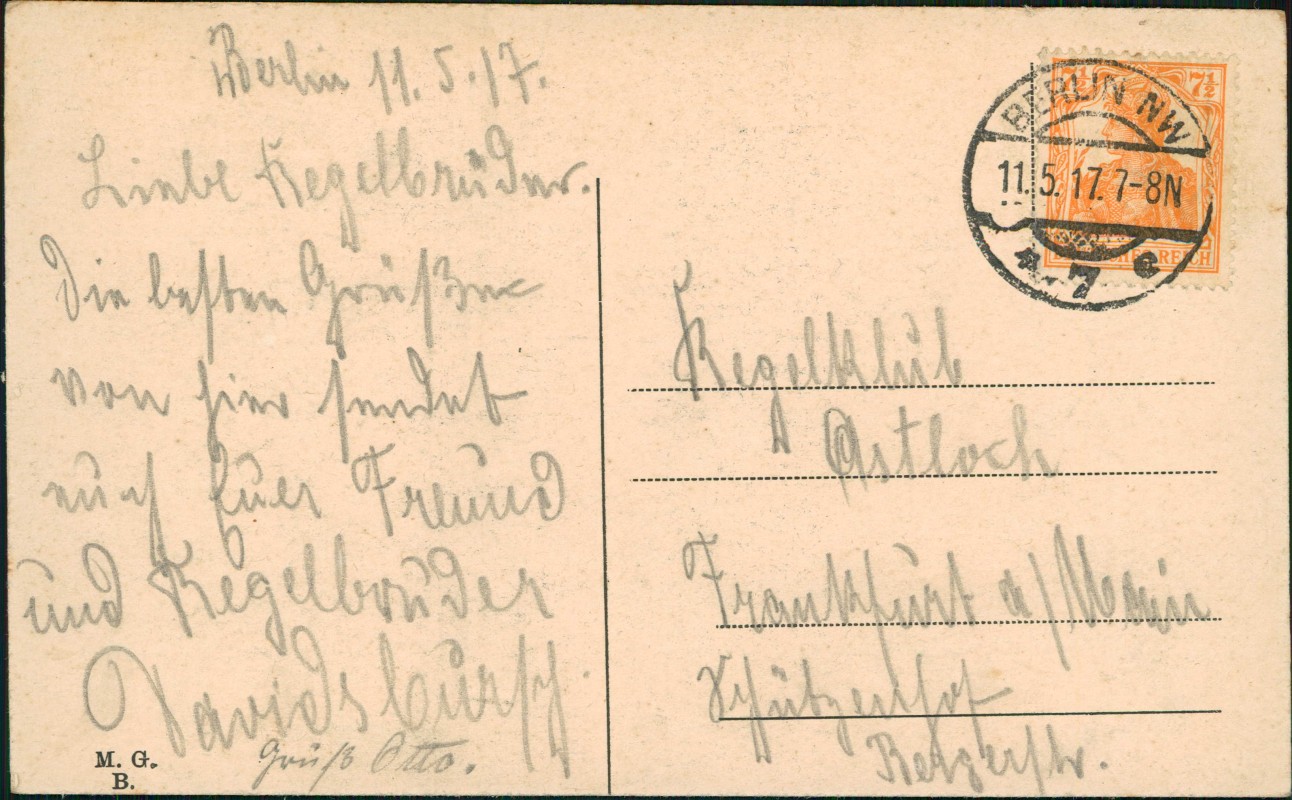 Berlin 11.5.17.
Liebe Kegelbrüder.
Die besten Grüße
von hier sendet
euch Euer Freund
und Kegelbruder
Davidsbursch
Gruß Otto.
M. G.
B.
7½ 7½
BERLIN NW
11.5.17.7-8N
* 7 e
REICH
Kegelklub
Astloch
Frankfurt a/Main
Schützenhof